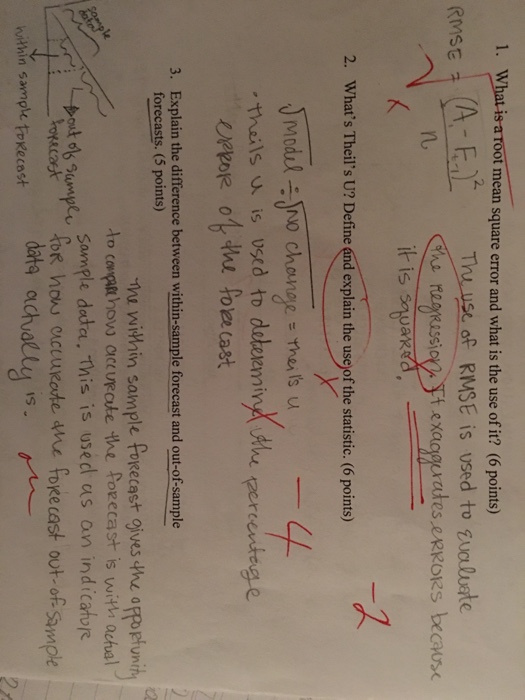 1. What is a root mean square error and what is the use of it? (6 points)
RMSE = (A - F t-1)²
n
The use of RMSE is used to evaluate
the regression. It exaggerates errors because
it is squared.
x
-2
2. What's Theil's U? Define and explain the use of the statistic. (6 points)
√Model ÷ √No change = Theil's U
- theils u is used to determine the percentage
error of the forecast
-4
3. Explain the difference between within-sample forecast and out-of-sample
forecasts. (5 points)
sample
data
out of sample
forecast
within sample forecast
The within sample forecast gives the opportunity
to compare how accurate the forecast is with actual
sample data. This is used as an indicator
for how accurate the forecast out-of-sample
data actually is.